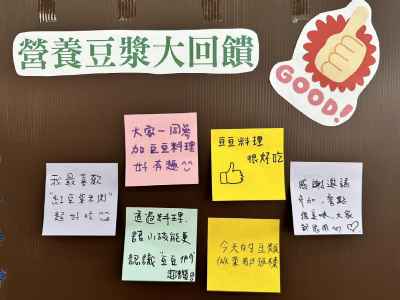 營養豆漿大回饋
GOOD!
大家一同參
加豆豆料理
好有趣
豆豆料理
很好吃
我最喜歡
"紅豆
超好吃
透過料理,
讓小孩能更
認識"豆豆們"
超讚!!
今天的豆類
做菜都
感謝邀請
參加,餐點
很美味,大家